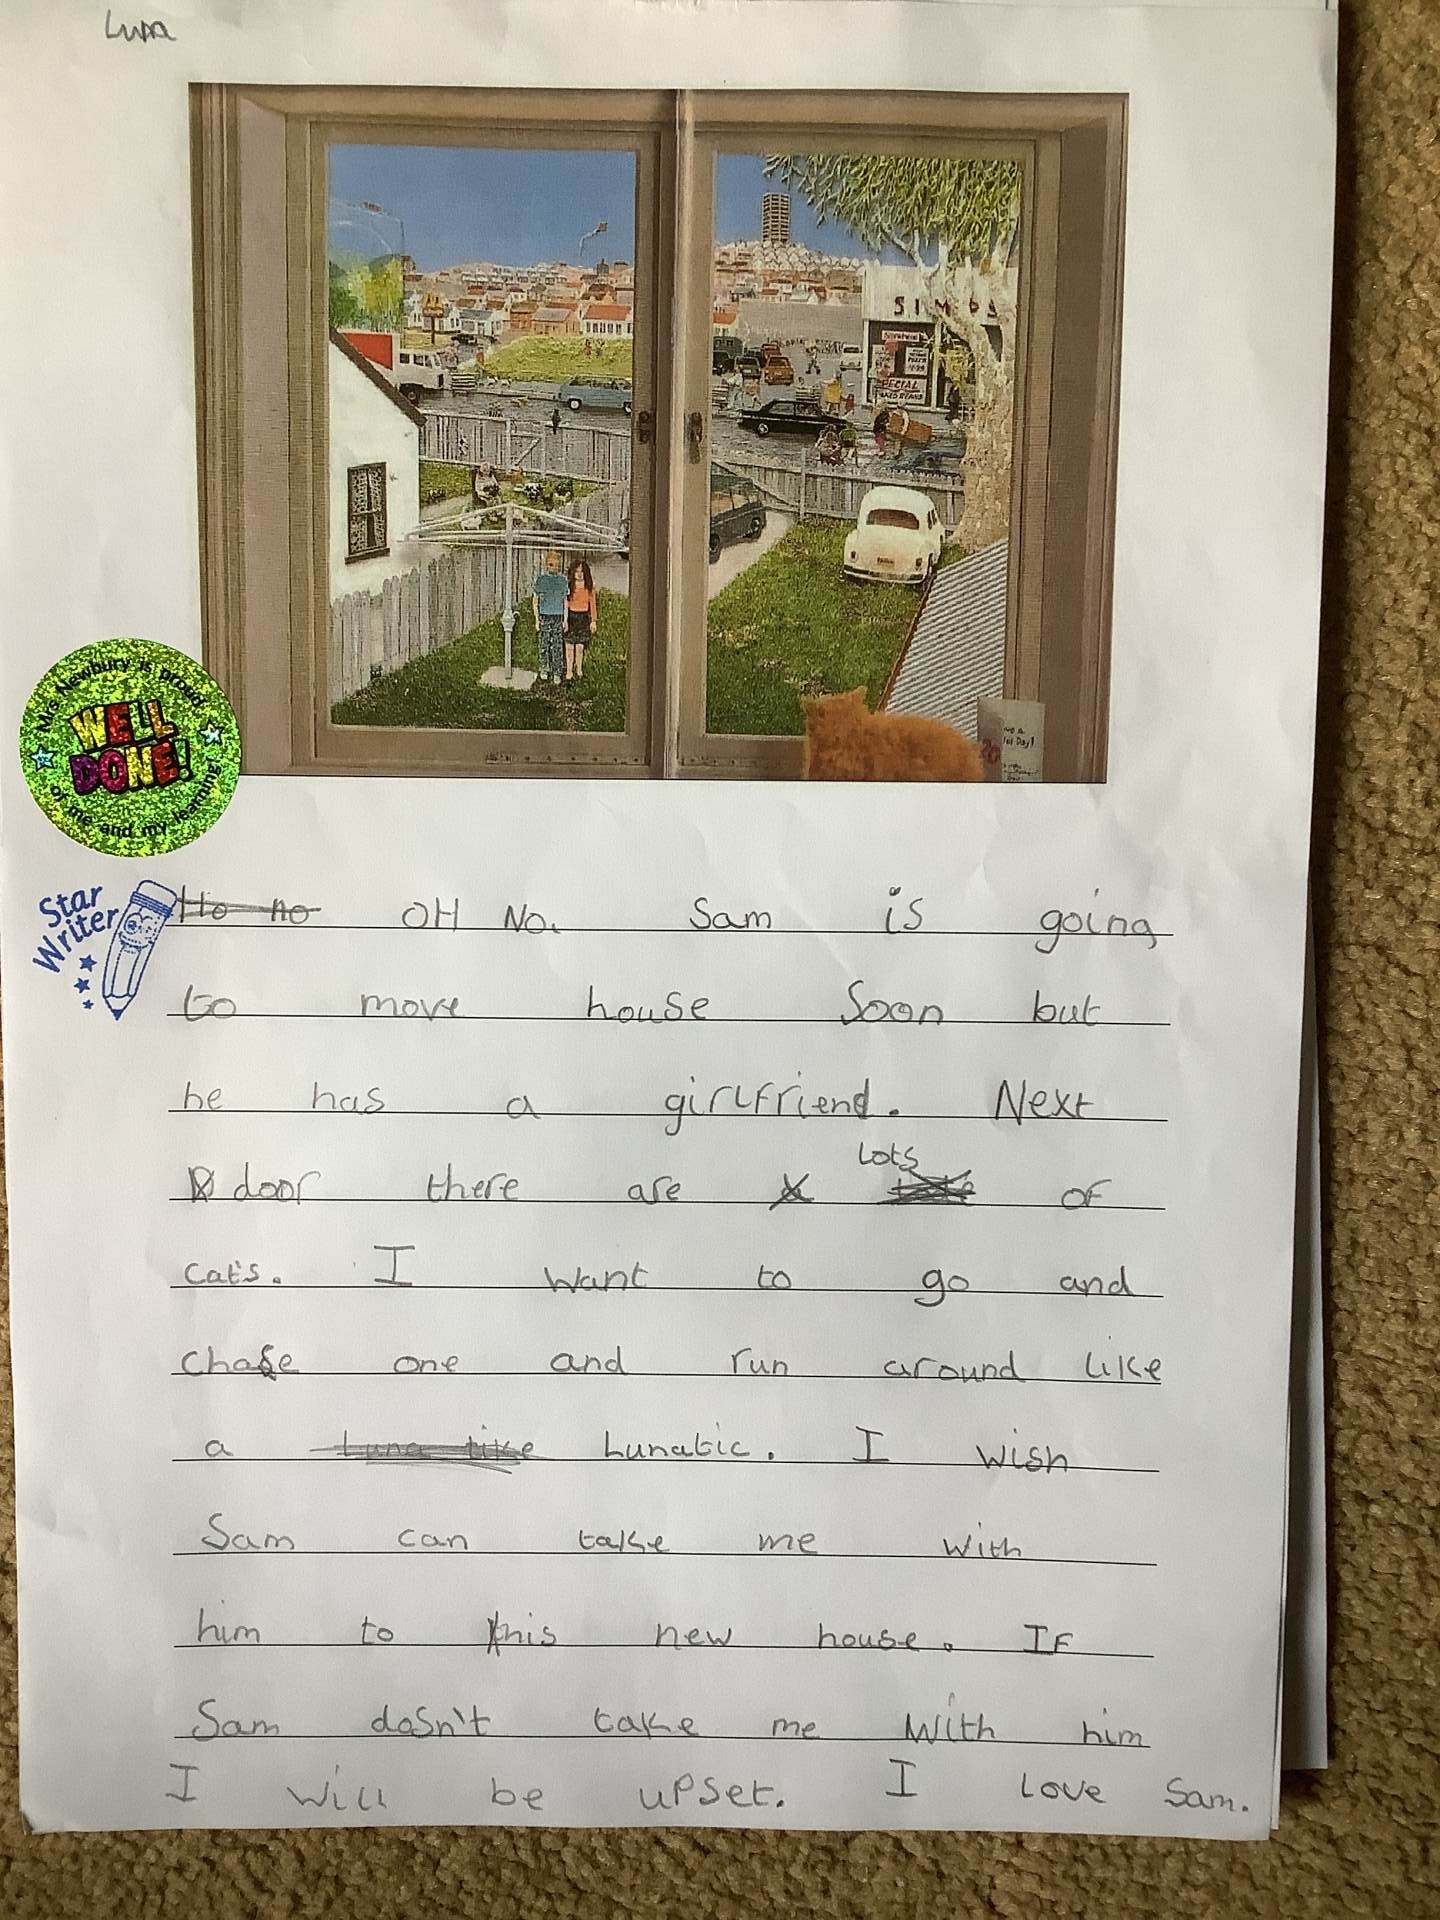 Luna
SIMPS
SPECIAL
Mrs Newbury is proud
WELL
DONE!
of me and my learning
Star
Writer
Ho no OH No. Sam is going
to move house Soon but
he has a girlfriend. Next
door there are Lots of
cats. I want to go and
chase one and run around like
a Luna like Lunatic. I wish
Sam can take me with
him to his new house. If
Sam dosn't take me With him
I will be upset. I Love Sam.